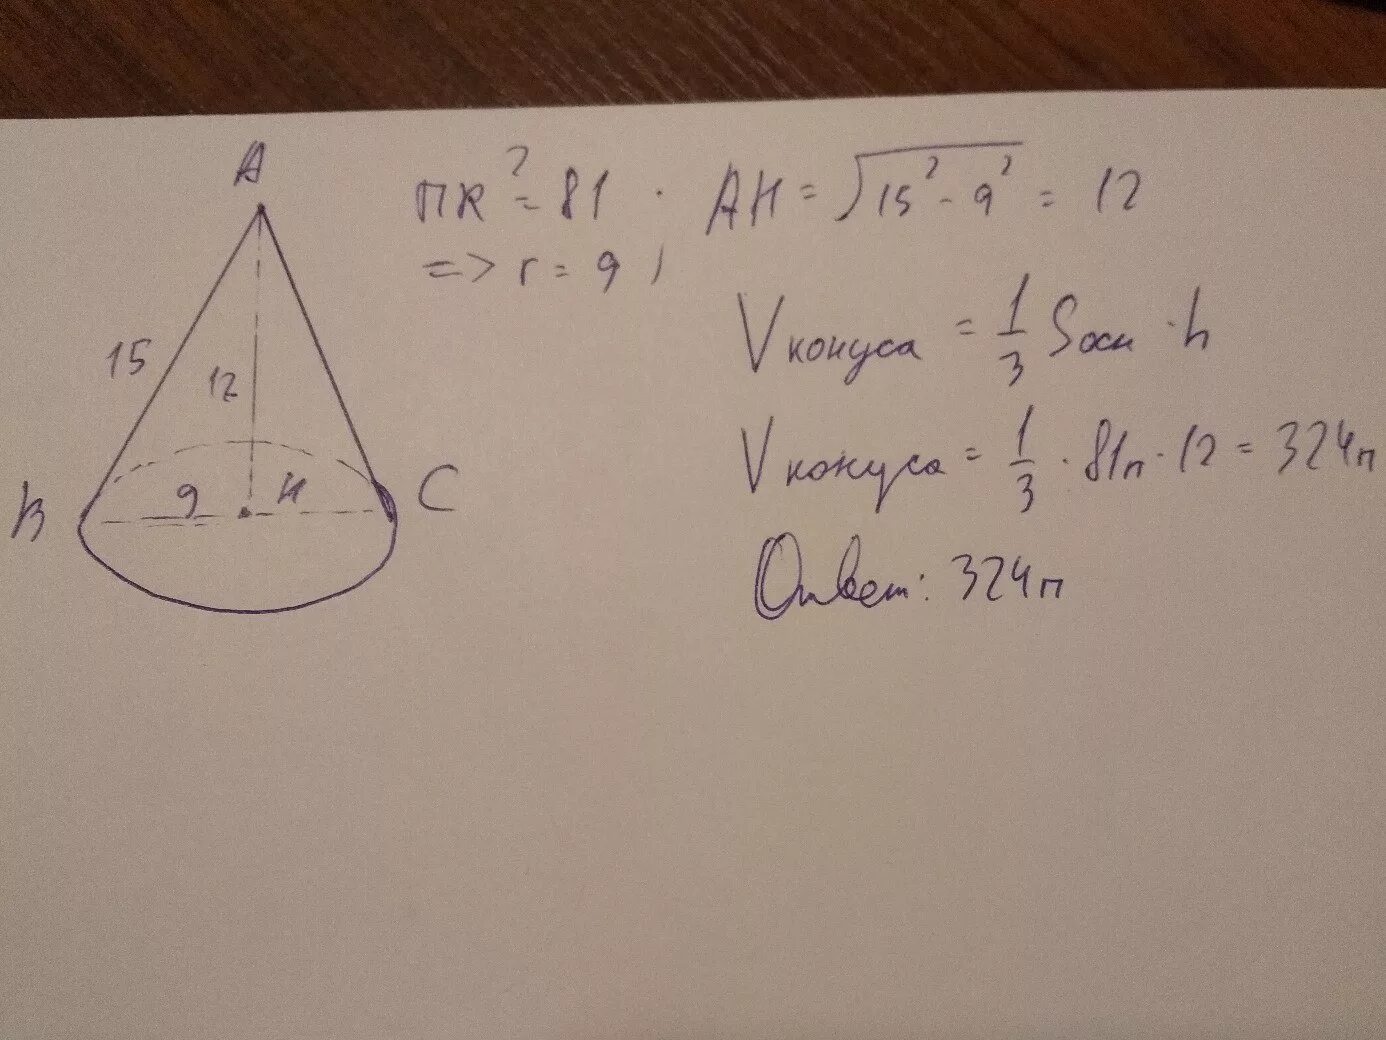 A
15
12
9
H
B
C
πR² = 81
=> r = 9 ;
AH = √15² - 9² = 12
Vконуса = 1/3 Sосн · h
Vконуса = 1/3 · 81π · 12 = 324π
Ответ: 324π